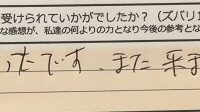 受けられていかがでしたか？（ズバリ
な感想が、私達の何よりの力となり今後の参考とな
ったです。また来ま